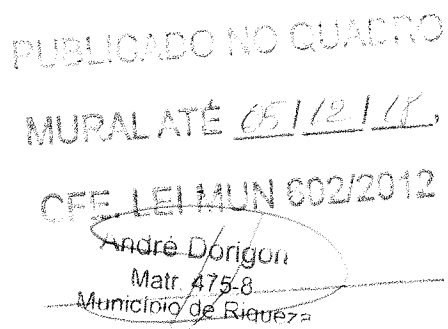 PUBLICADO NO QUADRO
MURAL ATÉ 05/12/18,
CFE. LEI MUN 602/2012
André Dorigon
Matr. 475-8
Município de Riqueza